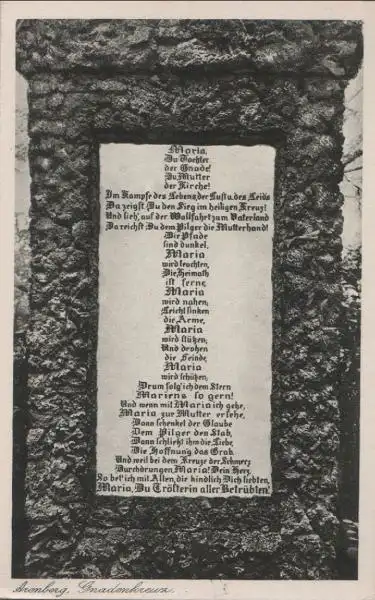 Maria,
Du Tochter
der Gnade!
Du Mutter
der Kirche!
Im Kampfe des Lebens, der Lust u. des Leids
Da zeigst Du den Sieg im heiligen Kreuz!
Und sieh', auf der Wallfahrt zum Vaterland
Da reichst Du dem Pilger die Mutterhand!
Die Pfade
sind dunkel,
Maria
wird leuchten,
Die Heimath
ist ferne,
Maria
wird nahen;
Leicht sinken
die Arme,
Maria
wird stützen;
Und drohen
die Feinde,
Maria
wird schützen;
Drum folg' ich dem Stern
Mariens so gern!
Und wenn mit Maria ich gehe,
Maria zur Mutter ersehe,
Dann schenket der Glaube
Dem Pilger den Stab,
Dann schließt ihm die Liebe,
Die Hoffnung das Grab.
Und weil bei dem Kreuze der Schmerz
Durchdrungen, Maria! Dein Herz,
So bet' ich mit Allen, die kindlich Dich liebten,
Maria, Du Trösterin aller Betrübten!
Arenberg, Gnadenkreuz.